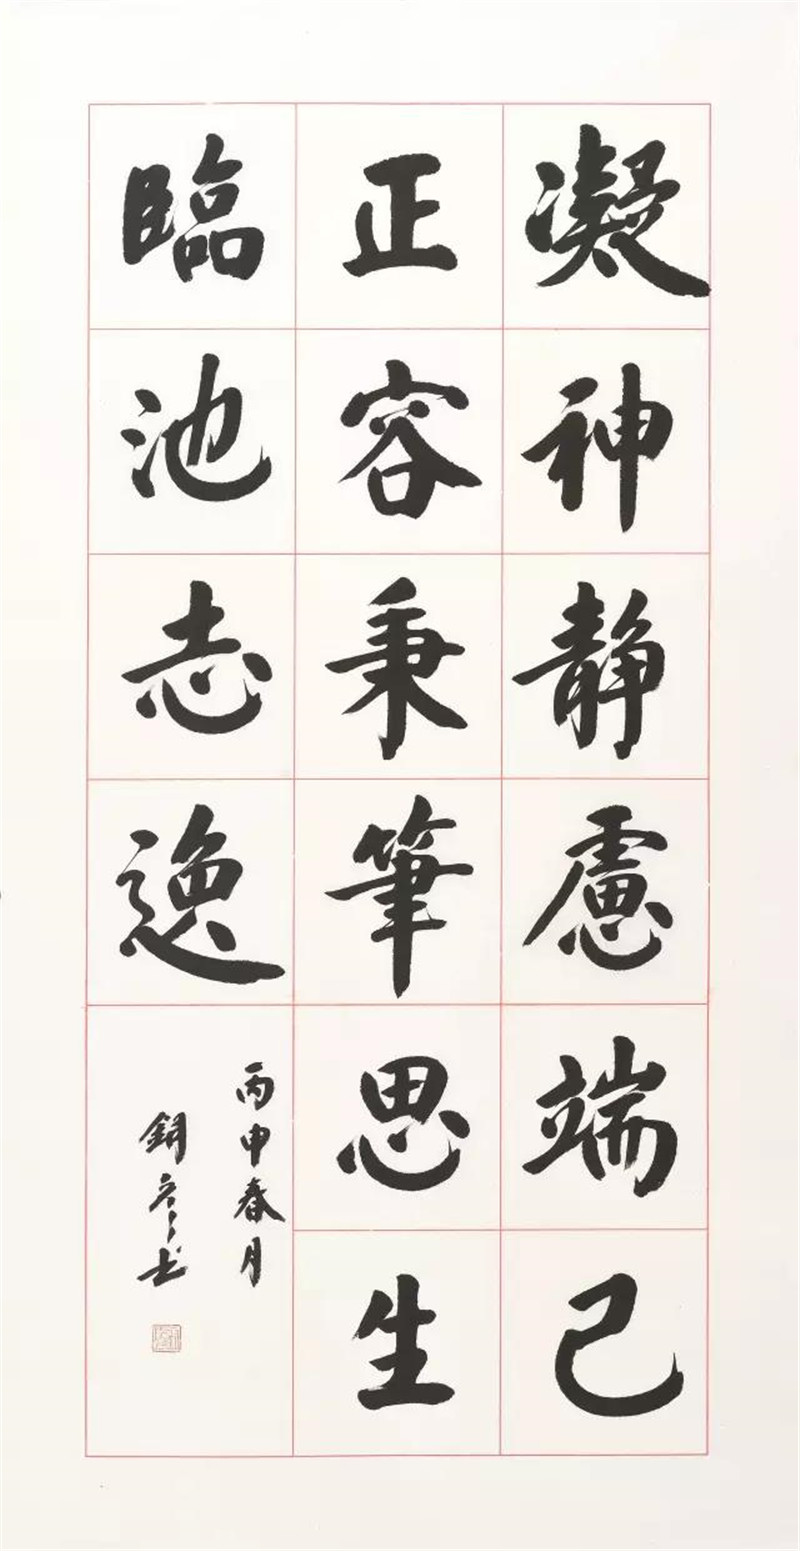 凝神靜慮端己
正容秉筆思生
臨池志逸
丙申春月
銅彦书